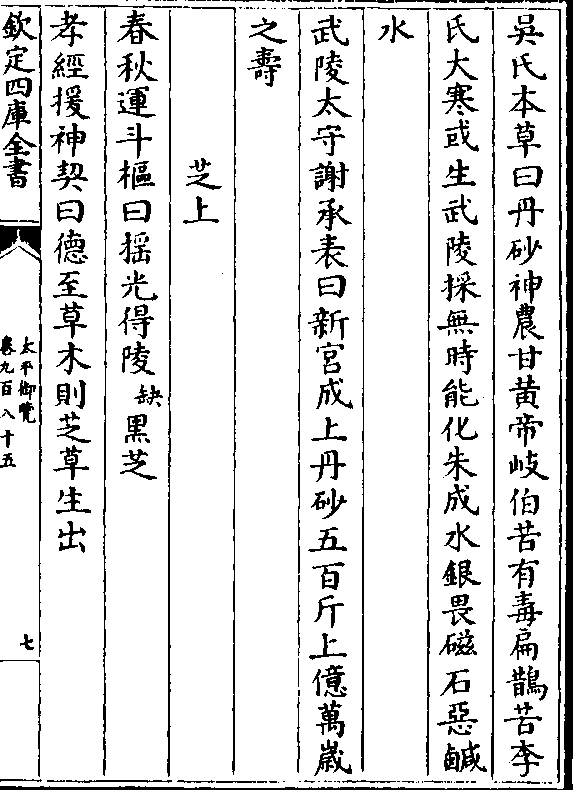 吳氏本草曰丹砂神農甘黄帝岐伯苦有毒扁鵲苦李
氏大寒或生武陵採無時能化朱成水銀畏磁石惡鹹
水
武陵太守謝承表曰新宮成上丹砂五百斤上億萬歳
之壽
芝上
春秋運斗樞曰揺光得陵缺黒芝
孝經援神契曰德至草木則芝草生出
欽定四庫全書
太平御覽
卷九百八十五
七